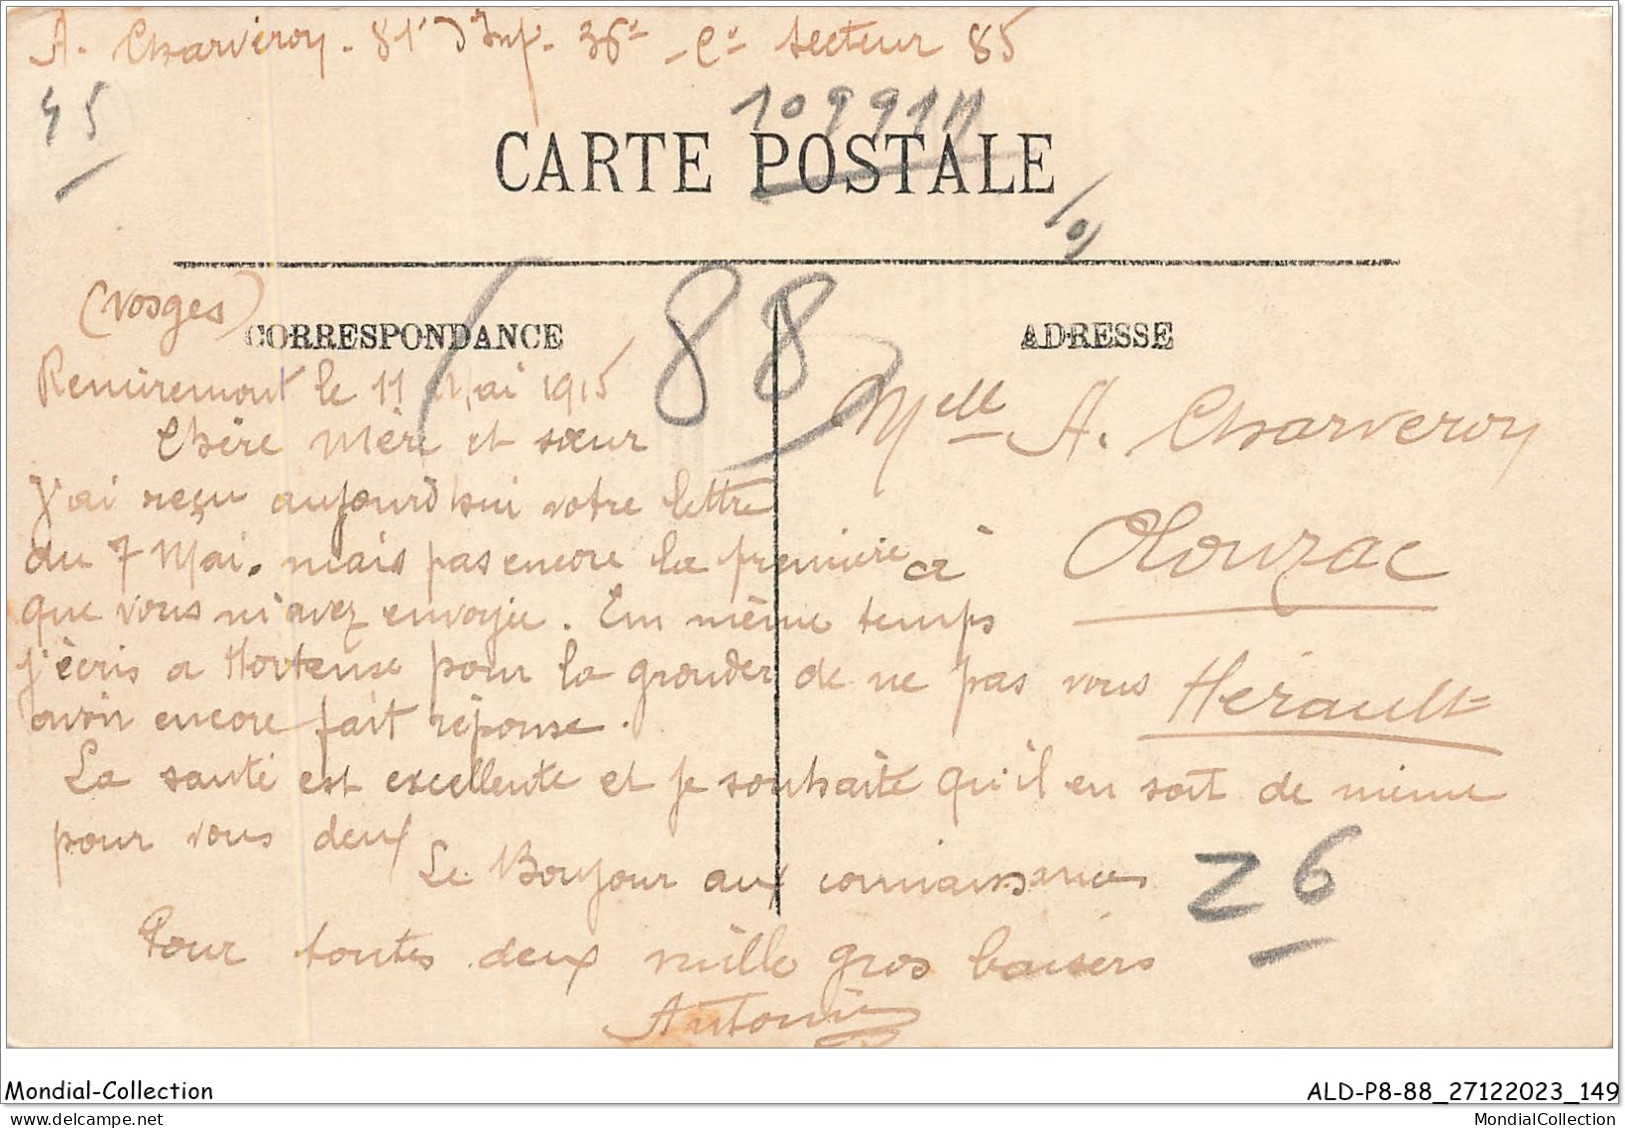 A. Charveroy - 81e d'Inf. 36e - Cie secteur 85
45
109911
CARTE POSTALE
(Vosges)
CORRESPONDANCE
88
ADRESSE
Remiremont le 11 Mai 1915
Chère Mère et sœur
J'ai reçu aujourd'hui votre lettre
du 7 Mai. mais pas encore la première
que vous m'avez envoyée. En même temps
j'écris a Hortense pour la gronder de ne pas vous
avoir encore fait réponse.
La santé est excellente et je souhaite qu'il en soit de même
pour vous deux
Le Bonjour aux connaissances
Pour toutes deux mille gros baisers
Antonin
Melle A. Charveroy
à Olonzac
Hérault
26
Mondial-Collection
ALD-P8-88_27122023_149
MondialCollection